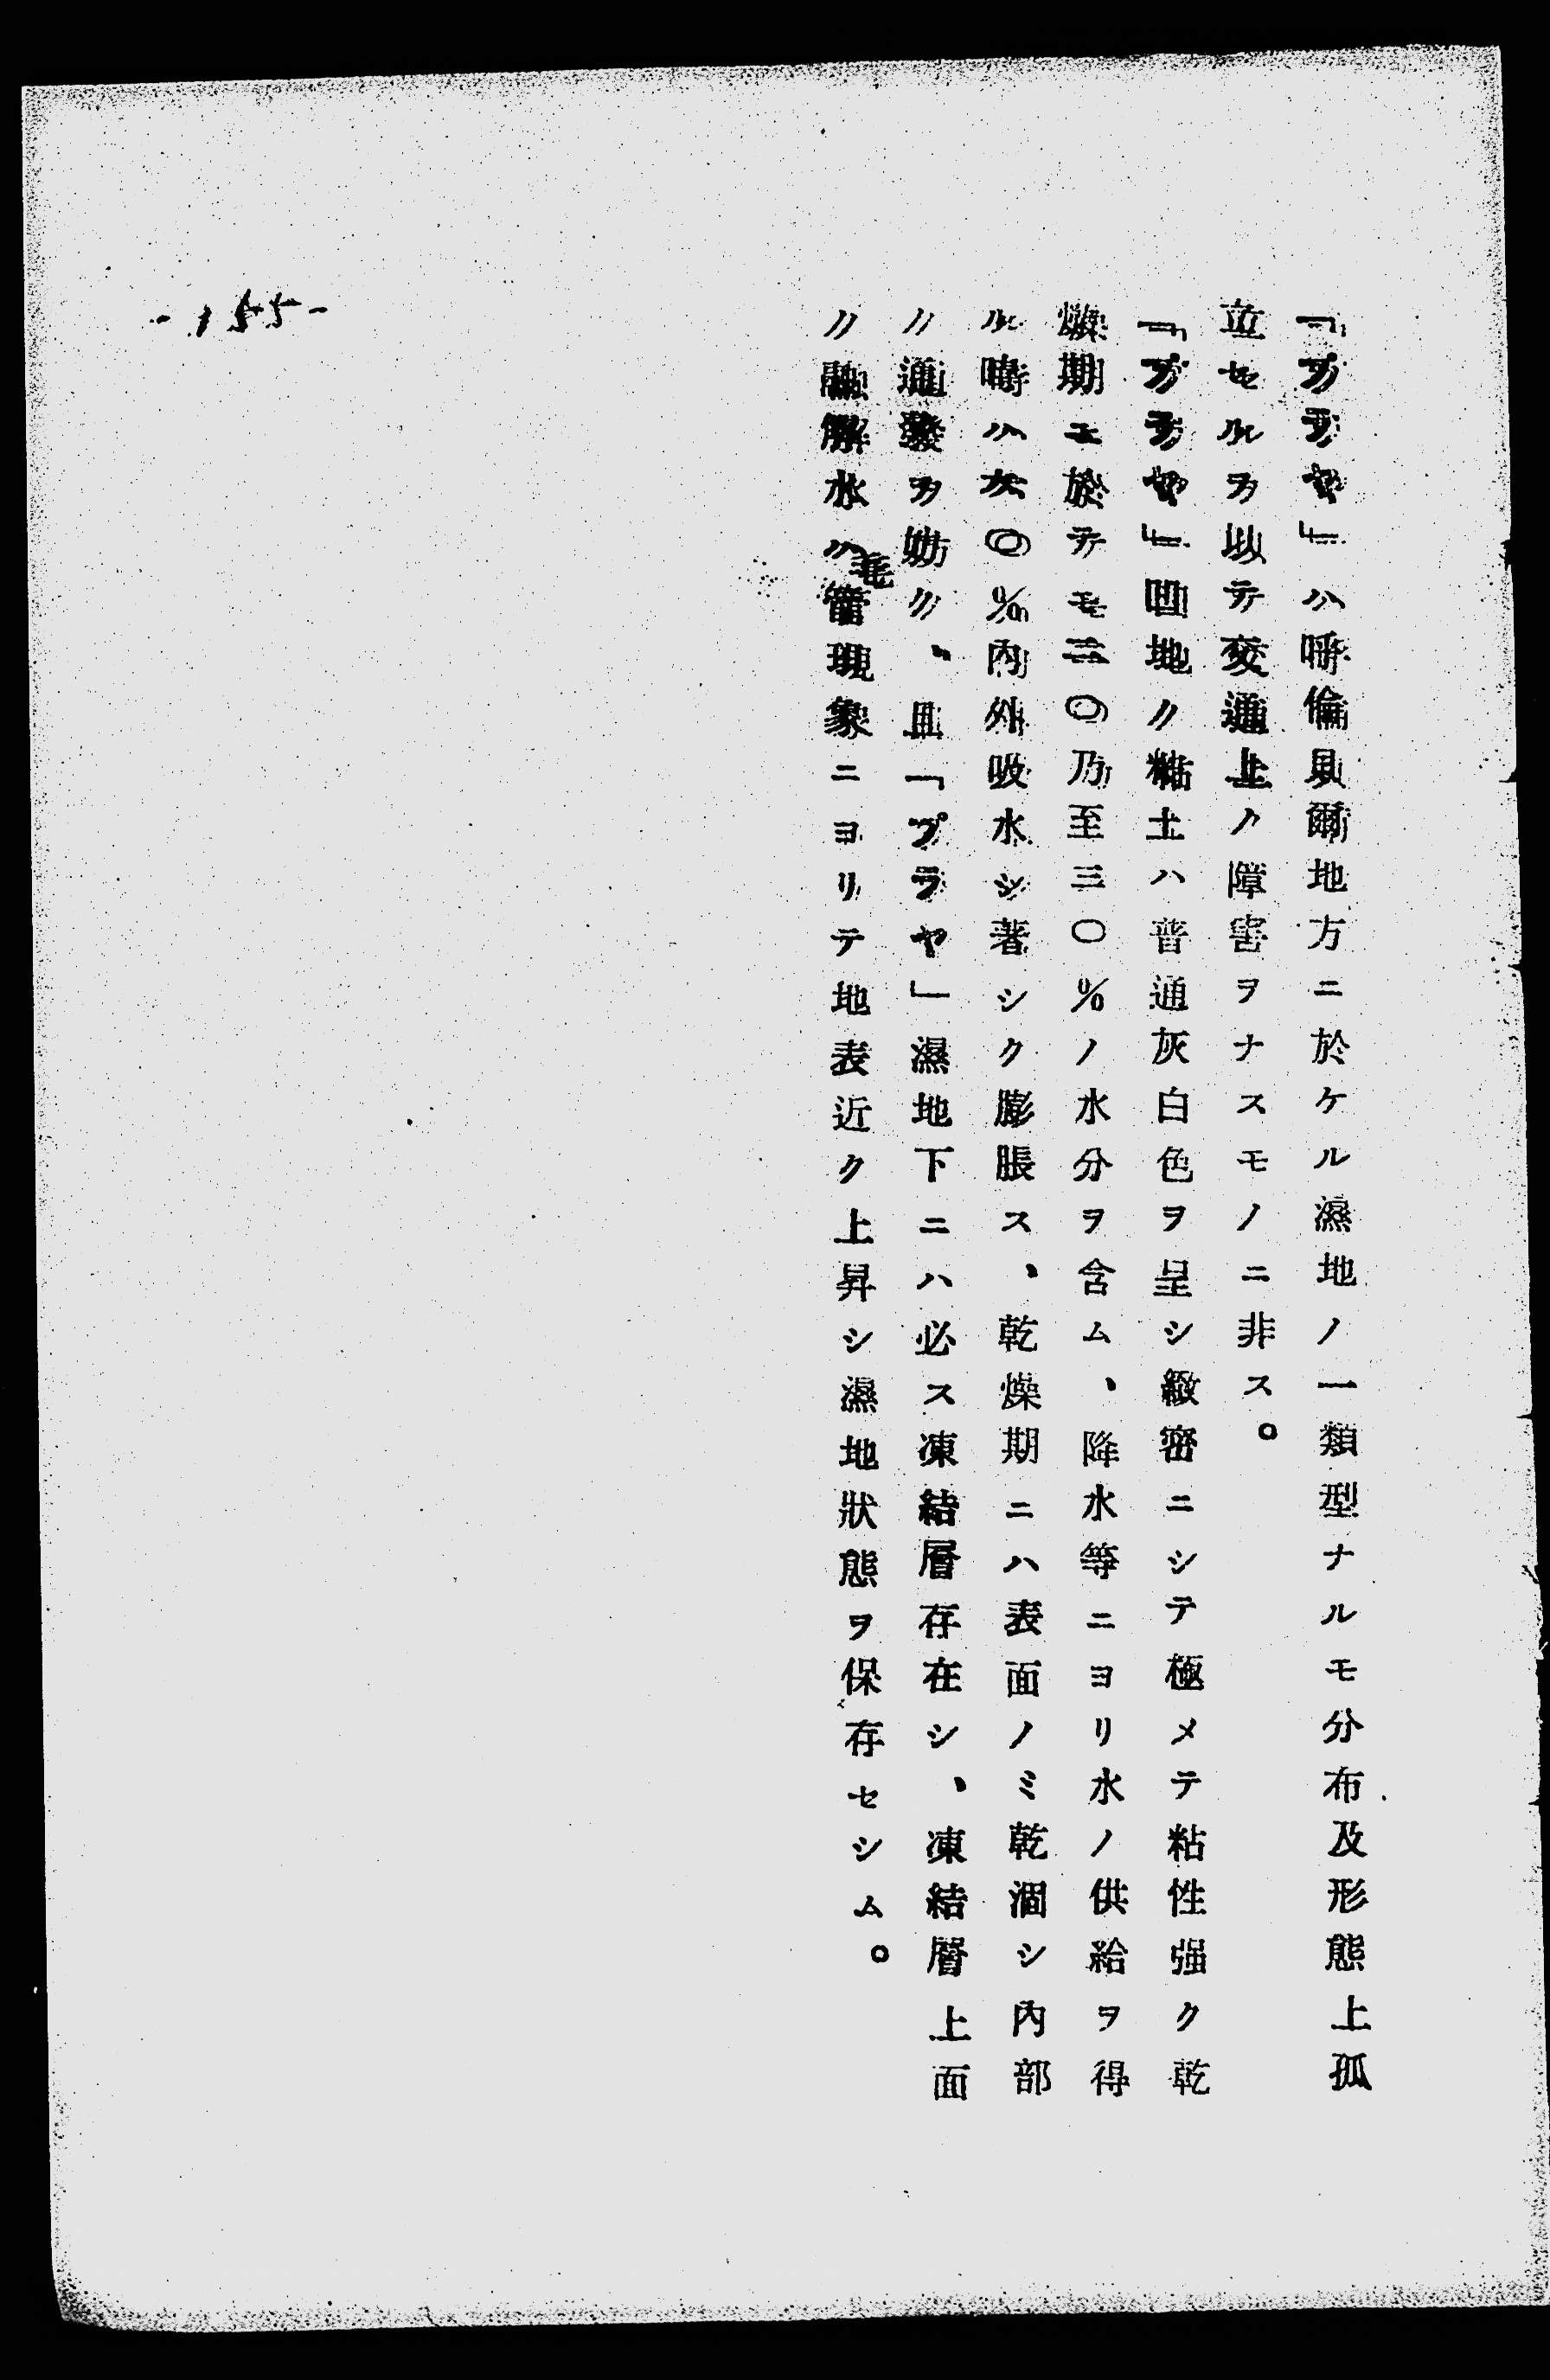 「プラヤ」ハ呼倫貝爾地方ニ於ケル濕地ノ一類型ナルモ分布及形態上孤
立セルヲ以テ交通上ノ障害ヲナスモノニ非ス。
「プラヤ」凹地ノ粘土ハ普通灰白色ヲ呈シ緻密ニシテ極メテ粘性强ク乾
燥期ニ於テモ二〇乃至三〇%ノ水分ヲ含ム、降水等ニヨリ水ノ供給ヲ得
ル時ハ六〇%內外吸水シ著シク膨脹ス、乾燥期ニハ表面ノミ乾涸シ內部
ノ通發ヲ妨ク、且「プラヤ」濕地下ニハ必ス凍結層存在シ、凍結層上面
ノ融解水ハ毛管現象ニヨリテ地表近ク上昇シ濕地狀態ヲ保存セシム。
-155-